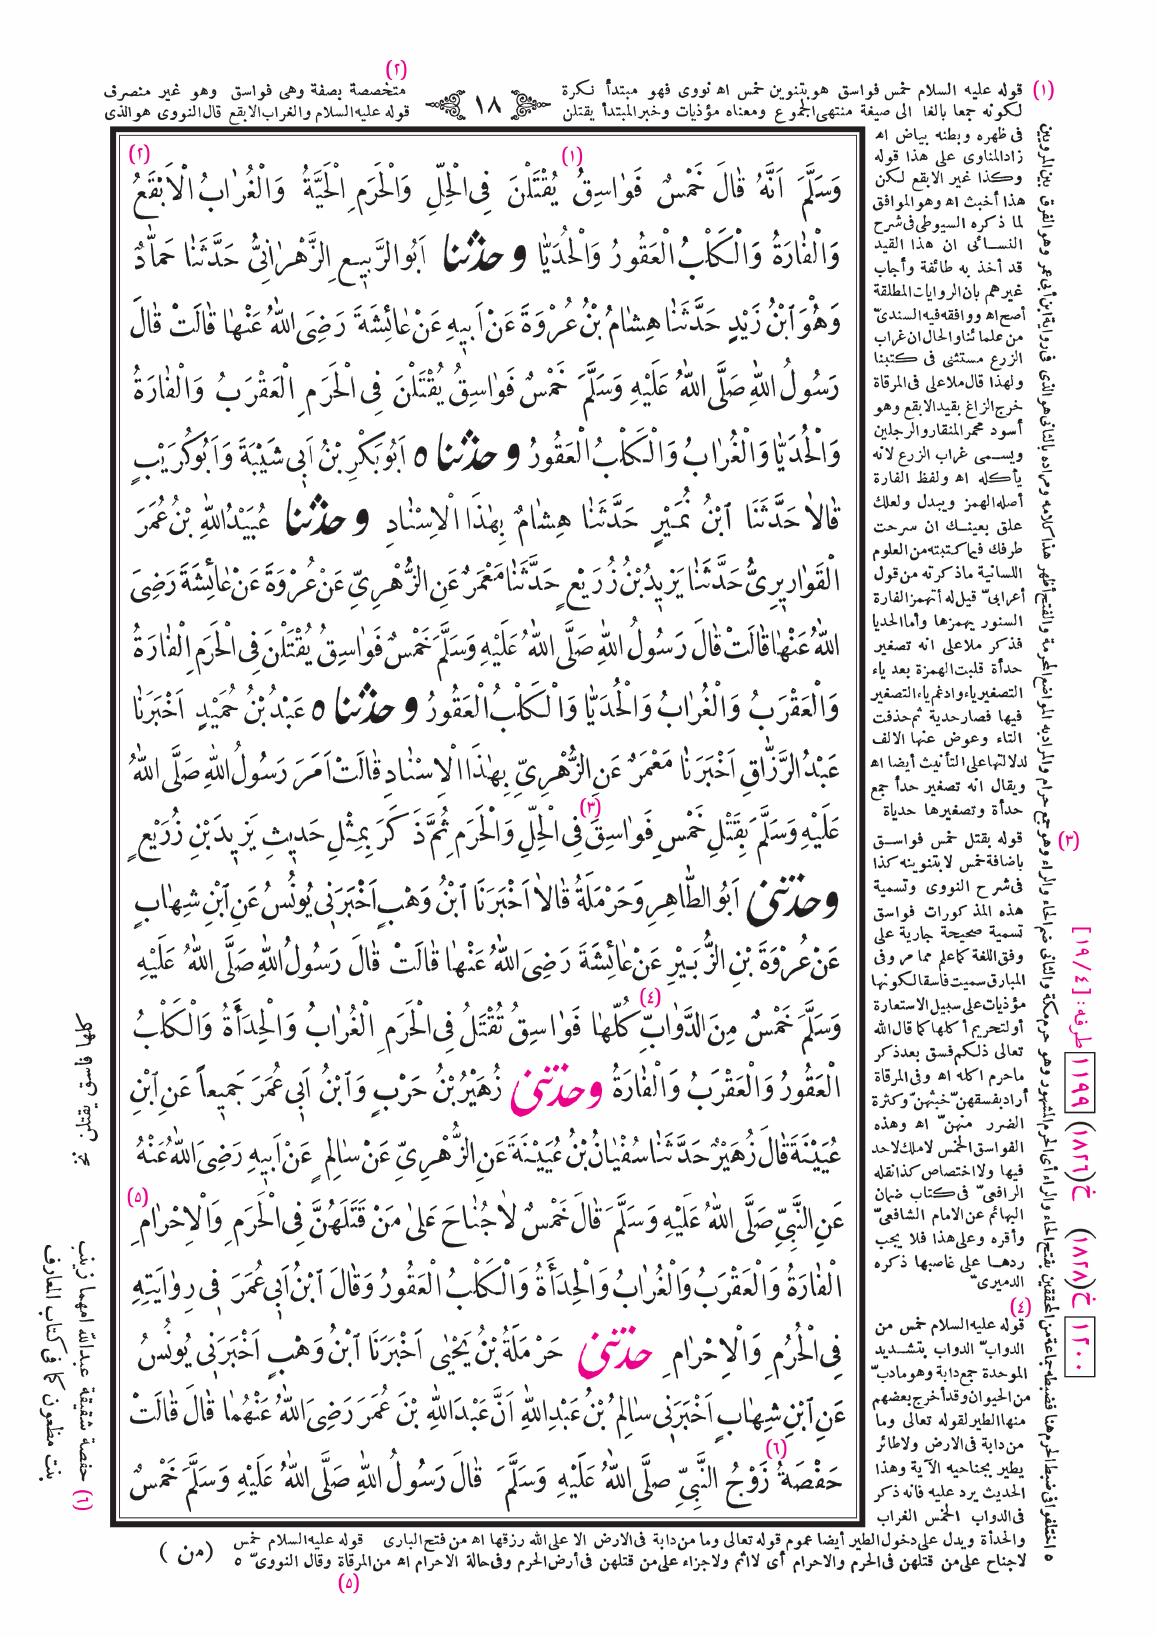 (٢)
(١) قوله عليه السلام خمس فواسق هو بتنوين خمس اه نووى فهو مبتدأ نكرة
متخصصة بصفة وهى فواسق وهو غير منصرف
١٨
لكونه جمعا بالغا الى صيغة منتهى الجموع ومعناه مؤذيات وخبر المبتدأ يقتلن
قوله عليه السلام والغراب الابقع قال النووى هو الذى
فى ظهره وبطنه بياض اه
زاد المناوى على هذا قوله
وكذا غير الابقع لكن
هذا أخبث اه وهو الموافق
لما ذكره السيوطى فى شرح
النسائى ان هذا القيد
قد أخذ به طائفة وأجاب
غيرهم بان الروايات المطلقة
أصح اه ووافقه فيه السندىّ
من علمائنا والحال ان غراب
الزرع مستثنى فى كتبنا
ولهذا قال ملا على فى المرقاة
خرج الزاغ بقيد الابقع وهو
أسود محمر المنقار والرجلين
ويسمى غراب الزرع لانه
يأكله اه ولفظ الفارة
أصله الهمز ويبدل ولعلك
علق بعينك ان سرحت
طرفك فيما كتبته من العلوم
اللسانية ما ذكرته من قول
أعرابىّ قيل له أتهمز الفارة
السنور يهمزها وأما الحديا
فذكر ملا على انه تصغير
حدأة قلبت الهمزة بعد ياء
التصغير ياء وادغم ياء التصغير
فيها فصار حدية ثم حذفت
التاء وعوض عنها الالف
لدلالتها على التأنيث أيضا اه
ويقال انه تصغير حدأ جمع
حدأة وتصغيرها حدياة
(٣) قوله بقتل خمس فواسق
باضافة خمس لا بتنوينه كذا
فى شرح النووى وتسمية
هذه المذكورات فواسق
تسمية صحيحة جارية على
وفق اللغة كما علم مما مر وفى
المبارق سميت فاسقا لكونها
مؤذيات على سبيل الاستعارة
أو لتحريم أكلها كما قال الله
تعالى ذلكم فسق بعد ذكر
ما حرم اكله اه وفى المرقاة
أراد بفسقهنّ خبثهنّ وكثرة
الضرر منهنّ اه وهذه
الفواسق الخمس لا ملك لاحد
فيها ولا اختصاص كذا نقله
الرافعىّ فى كتاب ضمان
البهائم عن الامام الشافعىّ
وأقره وعلى هذا فلا يجب
ردها على غاصبها ذكره
الدميرىّ
(٤)
قوله عليه السلام خمس من
الدوابّ الدواب بتشديد
الموحدة جمع دابة وهو مادبّ
من الحيوان وقد أخرج بعضهم
منها الطير لقوله تعالى وما
من دابة فى الارض ولا طائر
يطير بجناحيه الآية وهذا
الحديث يرد عليه فانه ذكر
فى الدواب الخمس الغراب
(٢) (١)
وَسَلَّمَ اَنَّهُ قَالَ خَمْسٌ فَوَاسِقُ يُقْتَلْنَ فِى الْحِلِّ وَالْحَرَمِ الْحَيَّةُ وَالْغُرَابُ الْاَبْقَعُ
وَالْفَارَةُ وَالْكَلْبُ الْعَقُورُ وَالْحُدَيَّا وحدثنا اَبُو الرَّبِيعِ الزَّهْرَانِىُّ حَدَّثَنَا حَمَّادٌ
وَهُوَ ابْنُ زَيْدٍ حَدَّثَنَا هِشَامُ بْنُ عُرْوَةَ عَنْ اَبِيهِ عَنْ عَائِشَةَ رَضِىَ اللّٰهُ عَنْهَا قَالَتْ قَالَ
رَسُولُ اللّٰهِ صَلَّى اللّٰهُ عَلَيْهِ وَسَلَّمَ خَمْسٌ فَوَاسِقُ يُقْتَلْنَ فِى الْحَرَمِ الْعَقْرَبُ وَالْفَارَةُ
وَالْحُدَيَّا وَالْغُرَابُ وَالْكَلْبُ الْعَقُورُ وحدثنا ٥ اَبُو بَكْرِ بْنُ اَبِى شَيْبَةَ وَاَبُو كُرَيْبٍ
قَالَا حَدَّثَنَا ابْنُ نُمَيْرٍ حَدَّثَنَا هِشَامٌ بِهٰذَا الْاِسْنَادِ وحدثنا عُبَيْدُ اللّٰهِ بْنُ عُمَرَ
الْقَوَارِيرِىُّ حَدَّثَنَا يَزِيدُ بْنُ زُرَيْعٍ حَدَّثَنَا مَعْمَرٌ عَنِ الزُّهْرِىِّ عَنْ عُرْوَةَ عَنْ عَائِشَةَ رَضِىَ
اللّٰهُ عَنْهَا قَالَتْ قَالَ رَسُولُ اللّٰهِ صَلَّى اللّٰهُ عَلَيْهِ وَسَلَّمَ خَمْسٌ فَوَاسِقُ يُقْتَلْنَ فِى الْحَرَمِ الْفَارَةُ
وَالْعَقْرَبُ وَالْغُرَابُ وَالْحُدَيَّا وَالْكَلْبُ الْعَقُورُ وحدثنا ٥ عَبْدُ بْنُ حُمَيْدٍ اَخْبَرَنَا
عَبْدُ الرَّزَّاقِ اَخْبَرَنَا مَعْمَرٌ عَنِ الزُّهْرِىِّ بِهٰذَا الْاِسْنَادِ قَالَتْ اَمَرَ رَسُولُ اللّٰهِ صَلَّى اللّٰهُ
(٣)
عَلَيْهِ وَسَلَّمَ بِقَتْلِ خَمْسِ فَوَاسِقَ فِى الْحِلِّ وَالْحَرَمِ ثُمَّ ذَكَرَ بِمِثْلِ حَدِيثِ يَزِيدَ بْنِ زُرَيْعٍ
وحدثنى اَبُو الطَّاهِرِ وَحَرْمَلَةُ قَالَا اَخْبَرَنَا ابْنُ وَهْبٍ اَخْبَرَنِى يُونُسُ عَنِ ابْنِ شِهَابٍ
عَنْ عُرْوَةَ بْنِ الزُّبَيْرِ عَنْ عَائِشَةَ رَضِىَ اللّٰهُ عَنْهَا قَالَتْ قَالَ رَسُولُ اللّٰهِ صَلَّى اللّٰهُ عَلَيْهِ
(٤)
وَسَلَّمَ خَمْسٌ مِنَ الدَّوَابِّ كُلُّهَا فَوَاسِقُ تُقْتَلُ فِى الْحَرَمِ الْغُرَابُ وَالْحِدَأَةُ وَالْكَلْبُ
الْعَقُورُ وَالْعَقْرَبُ وَالْفَارَةُ وحدثنى زُهَيْرُ بْنُ حَرْبٍ وَابْنُ اَبِى عُمَرَ جَمِيعاً عَنِ ابْنِ
عُيَيْنَةَ قَالَ زُهَيْرٌ حَدَّثَنَا سُفْيَانُ بْنُ عُيَيْنَةَ عَنِ الزُّهْرِىِّ عَنْ سَالِمٍ عَنْ اَبِيهِ رَضِىَ اللّٰهُ عَنْهُ
(٥)
عَنِ النَّبِىِّ صَلَّى اللّٰهُ عَلَيْهِ وَسَلَّمَ قَالَ خَمْسٌ لَا جُنَاحَ عَلٰى مَنْ قَتَلَهُنَّ فِى الْحَرَمِ وَالْاِحْرَامِ
الْفَارَةُ وَالْعَقْرَبُ وَالْغُرَابُ وَالْحِدَأَةُ وَالْكَلْبُ الْعَقُورُ وَقَالَ ابْنُ اَبِى عُمَرَ فِى رِوَايَتِهِ
فِى الْحُرُمِ وَالْاِحْرَامِ حدثنى حَرْمَلَةُ بْنُ يَحْيٰى اَخْبَرَنَا ابْنُ وَهْبٍ اَخْبَرَنِى يُونُسُ
عَنِ ابْنِ شِهَابٍ اَخْبَرَنِى سَالِمُ بْنُ عَبْدِ اللّٰهِ اَنَّ عَبْدَ اللّٰهِ بْنَ عُمَرَ رَضِىَ اللّٰهُ عَنْهُمَا قَالَ قَالَتْ
(٦)
حَفْصَةُ زَوْجُ النَّبِىِّ صَلَّى اللّٰهُ عَلَيْهِ وَسَلَّمَ قَالَ رَسُولُ اللّٰهِ صَلَّى اللّٰهُ عَلَيْهِ وَسَلَّمَ خَمْسٌ
والحدأة ويدل على دخول الطير أيضا عموم قوله تعالى وما من دابة فى الارض الا على الله رزقها اه من فتح البارى قوله عليه السلام خمس
لا جناح على من قتلهن فى الحرم والاحرام أى لا اثم ولا جزاء على من قتلهن فى أرض الحرم وفى حالة الاحرام اه من المرقاة وقال النووىّ ٥
(من)
(٥)
١١٩٩ طرفه: [١٩/٤]
خ (١٨٢٦)
١٢٠٠ خ (١٨٢٨)
(٦) حفصة شقيقة عبد الله امهما زينب
بنت مظعون كما فى كتاب المعارف